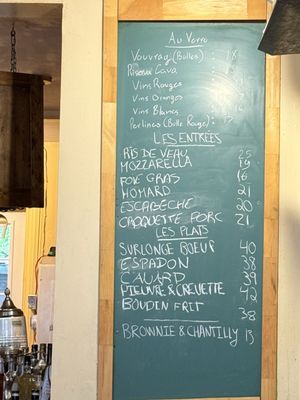 Au Verre
Vouvray (Bulles) : 18
Cava
Vins Rouges
Vins Oranges
Vins Blancs
Perlines (Bulle Rouge) : 17
LES ENTRÉES
RIS DE VEAU 25
MOZZARELLA 19
FOIE GRAS 16
HOMARD 21
ESCABECHE 20
CROQUETTE PORC 21
LES PLATS
SURLONGE BOEUF 40
ESPADON 38
CANARD 39
PIEUVRE & CREVETTE 42
BOUDIN FRIT 38
BROWNIE & CHANTILLY 13